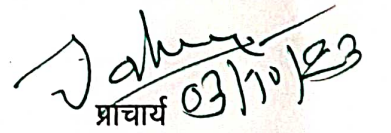 प्राचार्य 03/10/23